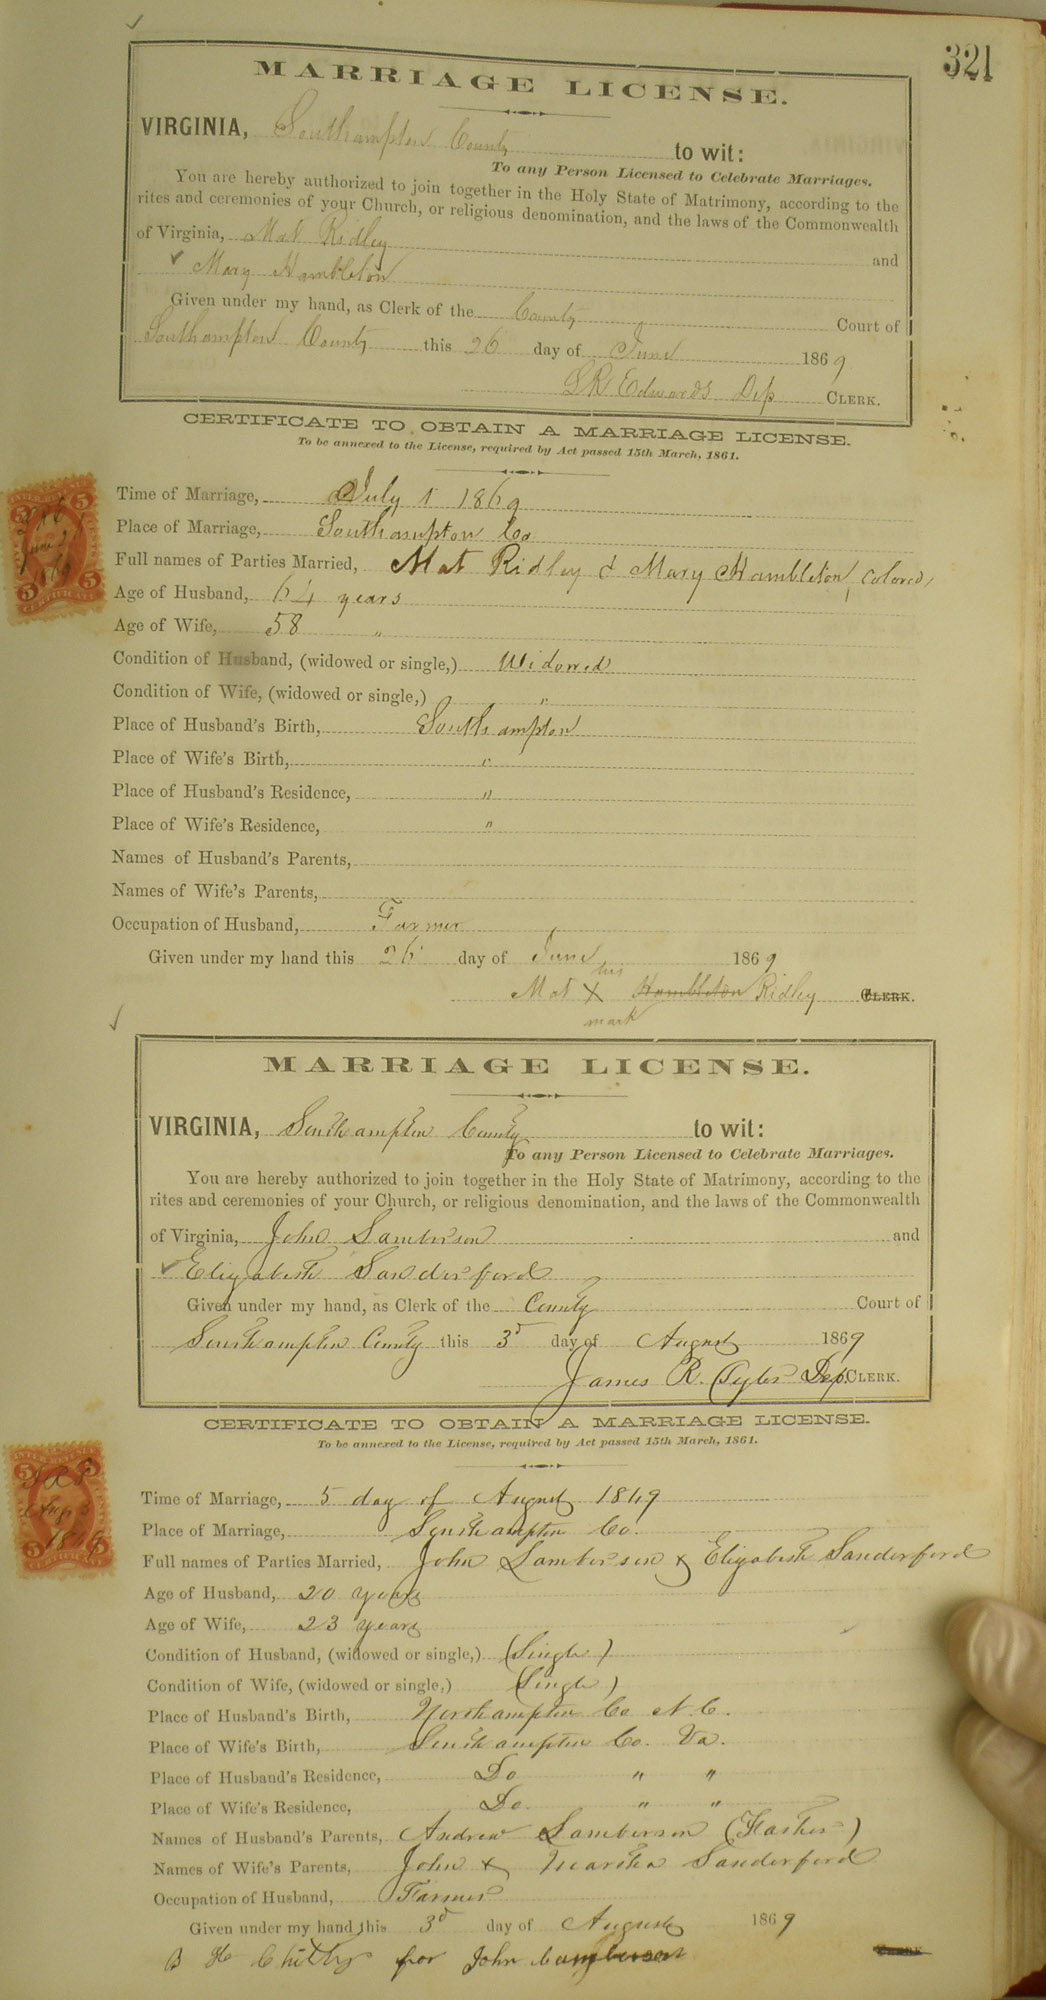 321
MARRIAGE LICENSE.
VIRGINIA, Southampton County to wit:
To any Person Licensed to Celebrate Marriages.
You are hereby authorized to join together in the Holy State of Matrimony, according to the
rites and ceremonies of your Church, or religious denomination, and the laws of the Commonwealth
of Virginia, Mat Ridley and
Mary Hambleton
Given under my hand, as Clerk of the County Court of
Southampton County this 26 day of June 1869.
L R Edwards Dep CLERK.
CERTIFICATE TO OBTAIN A MARRIAGE LICENSE.
To be annexed to the License, required by Act passed 15th March, 1861.
Time of Marriage, July 1 1869
Place of Marriage, Southampton Co
Full names of Parties Married, Mat Ridley & Mary Hambleton, Colored,
Age of Husband, 64 years
Age of Wife, 58 "
Condition of Husband, (widowed or single,) Widowed
Condition of Wife, (widowed or single,) "
Place of Husband's Birth, Southampton
Place of Wife's Birth, "
Place of Husband's Residence, "
Place of Wife's Residence, "
Names of Husband's Parents,
Names of Wife's Parents,
Occupation of Husband, Farmer
Given under my hand this 26 day of June 1869
his
Mat X Hambleton Ridley CLERK.
mark
MARRIAGE LICENSE.
VIRGINIA, Southampton County to wit:
To any Person Licensed to Celebrate Marriages.
You are hereby authorized to join together in the Holy State of Matrimony, according to the
rites and ceremonies of your Church, or religious denomination, and the laws of the Commonwealth
of Virginia, John Lamberson and
Elizabeth Sanderford
Given under my hand, as Clerk of the County Court of
Southampton County this 3d day of August 1869
James R. Tyler Dep. CLERK.
CERTIFICATE TO OBTAIN A MARRIAGE LICENSE.
To be annexed to the License, required by Act passed 15th March, 1861.
Time of Marriage, 5 day of August 1869
Place of Marriage, Southampton Co.
Full names of Parties Married, John Lamberson & Elizabeth Sanderford
Age of Husband, 20 years
Age of Wife, 23 years
Condition of Husband, (widowed or single,) (Single)
Condition of Wife, (widowed or single,) (Single)
Place of Husband's Birth, Northampton Co N.C.
Place of Wife's Birth, Southampton Co. Va.
Place of Husband's Residence, Do " "
Place of Wife's Residence, Do. " "
Names of Husband's Parents, Andrew Lamberson (Father)
Names of Wife's Parents, John & Martha Sanderford
Occupation of Husband, Farmer
Given under my hand this 3d day of August 1869
B H Chitty for John Lamberson CLERK